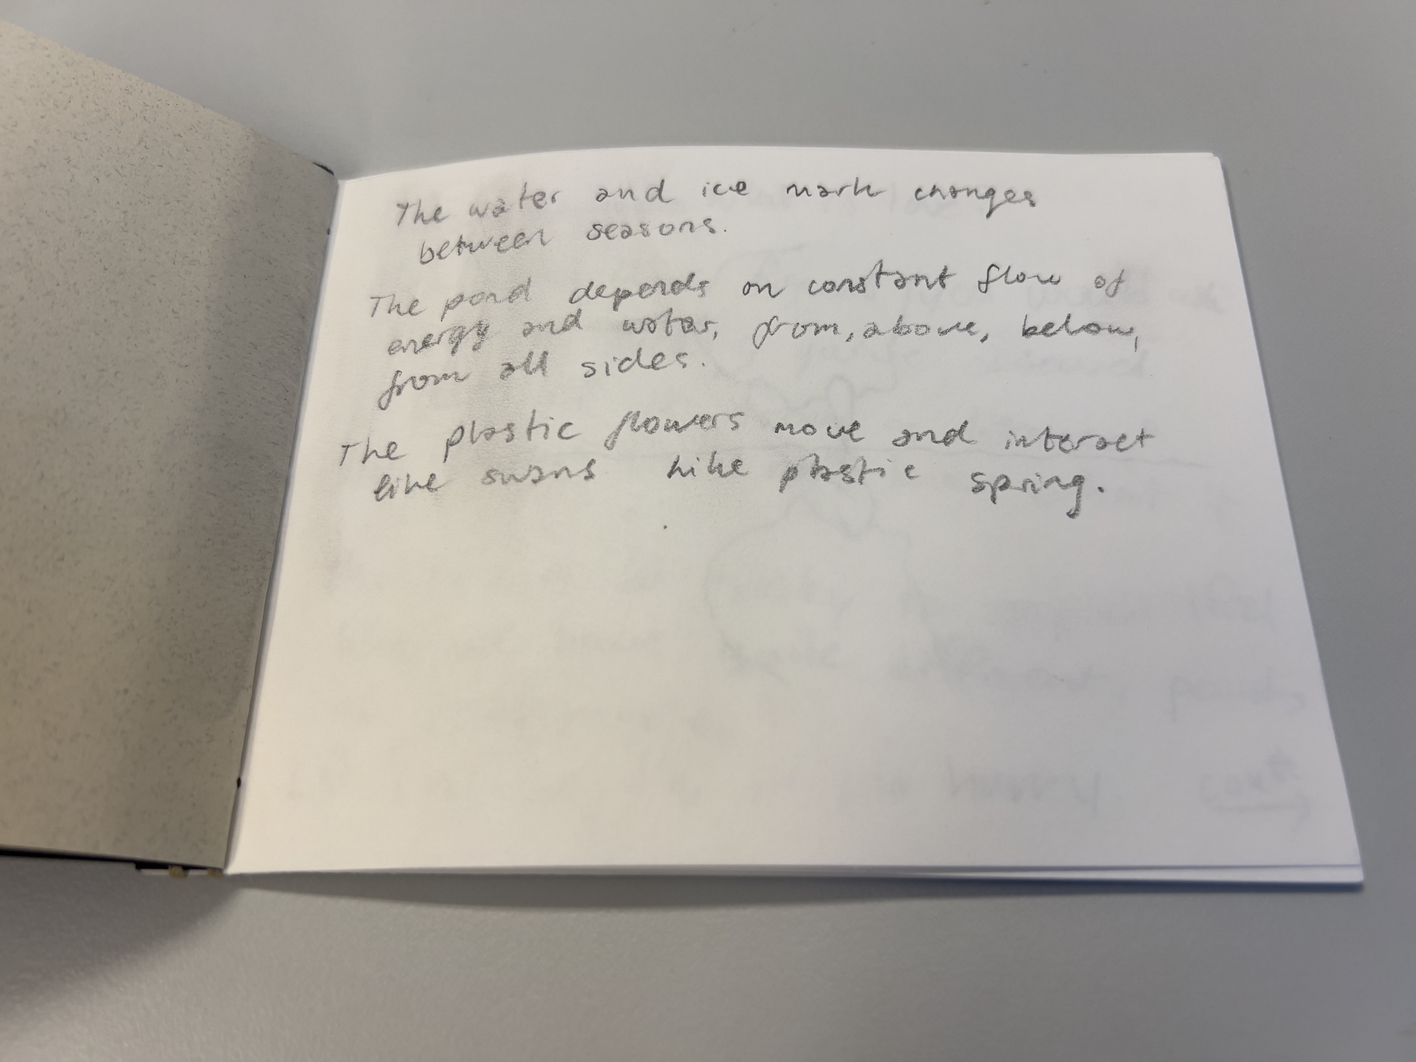 The water and ice mark changes
between seasons.
The pond depends on constant flow of
energy and water, from, above, below,
from all sides.
The plastic flowers move and interact
like swans like plastic spring.